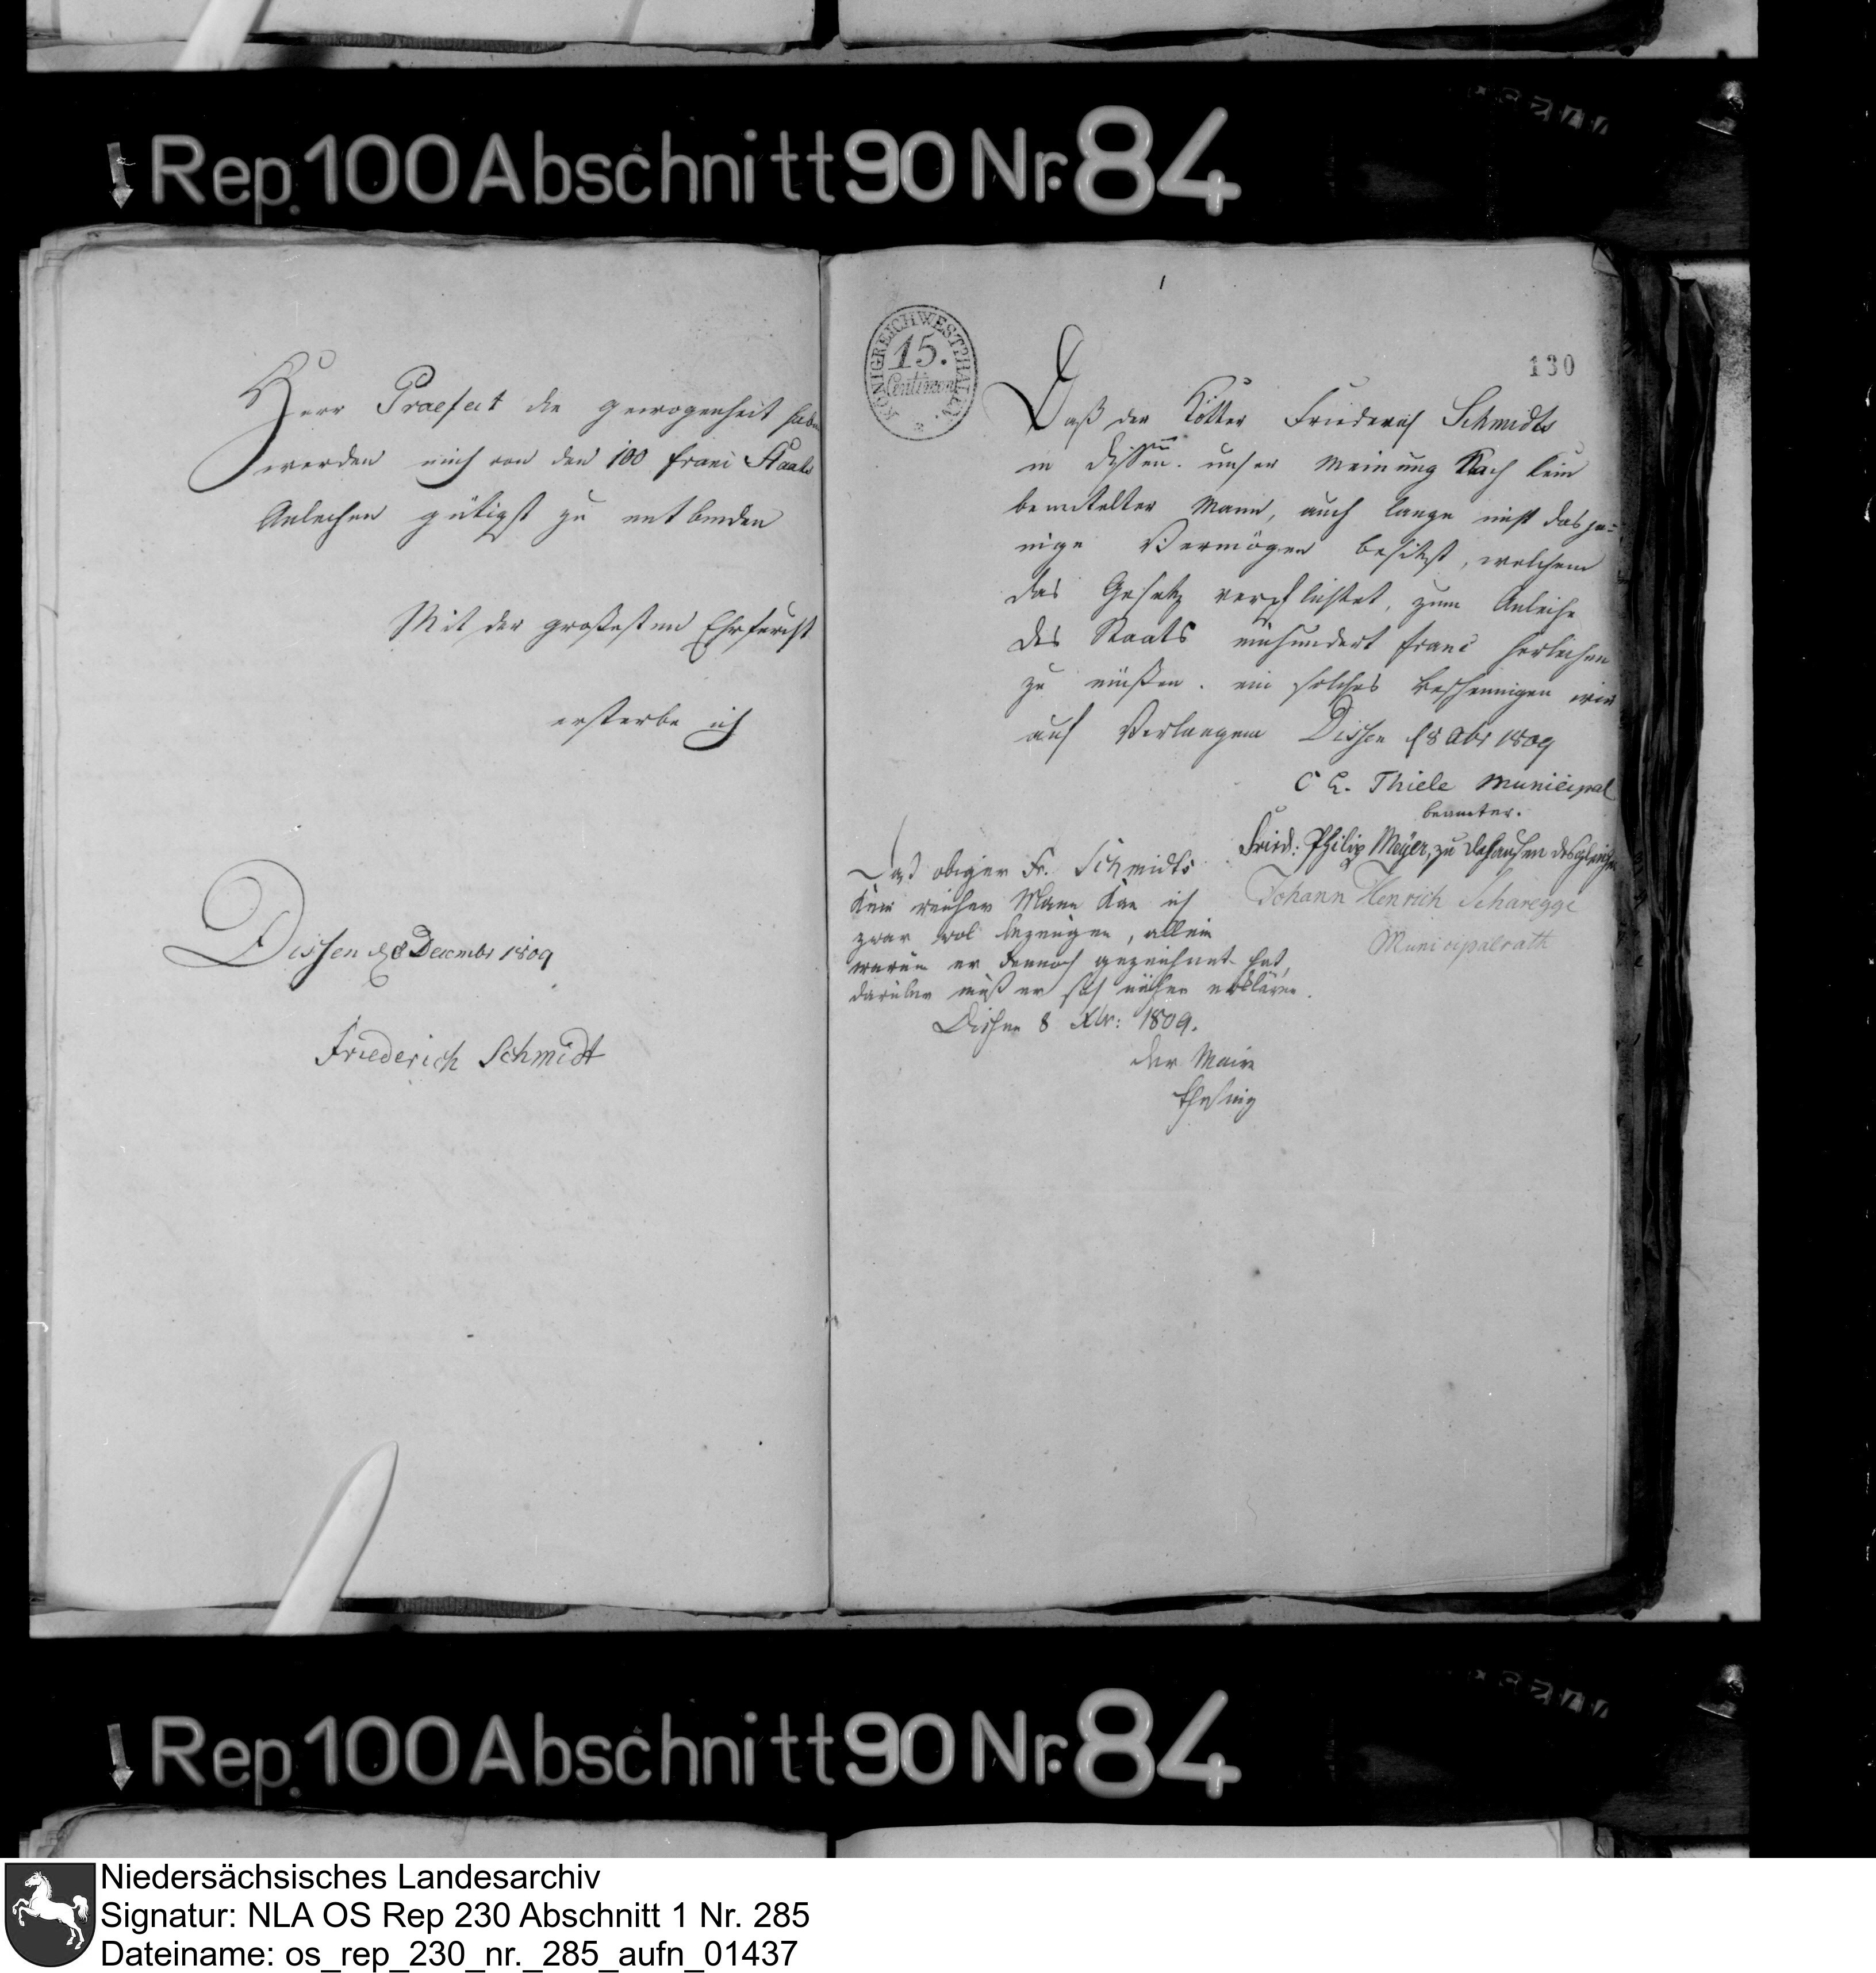 Rep. 100 Abschnitt 90 Nr. 84
Herr Praefect die gewogenheit haben
werden mich von den 100 franc Staats
Anlechen gütigst zu entbinden
Mit der großesten Ehrfurcht
ersterbe ich
Dissen d 8 Decembr 1809
Friederich Schmidt
KÖNIGREICH WESTPHALEN.
15.
Centimen
130
Daß der Kötter Friederich Schmidts
in Dissen. unser Meinung Nach kein
bemittelter Mann, auch lange nicht das je=
nige Vermögen besitzt, welchem
das Gesetz verpflichtet, zum Anleihe
des Staats einhundert franc herleihen
zu müßen. ein solches bescheinigen wir
auf Verlangen Dissen d 8 Xbr 1809
C E. Thiele Municipal
beamter.
Fried: Philip Meÿer, zu desgleichen
Johann Henrich Scharegge
Municipalrath
Daß obiger Fr. Schmidts
kein reicher Mann kan ich
zwar wol bezeugen, allein
warum er dennoch gezeichnet hat,
darüber muß er sich näher erklären.
Dissen 8 Xbr: 1809.
der Maire
Rep. 100 Abschnitt 90 Nr. 84
Niedersächsisches Landesarchiv
Signatur: NLA OS Rep 230 Abschnitt 1 Nr. 285
Dateiname: os_rep_230_nr._285_aufn_01437